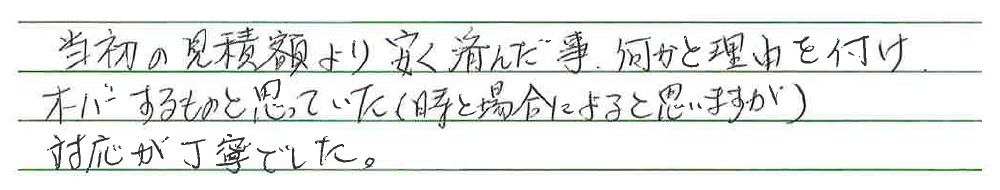 当初の見積額より安く済んだ事.何かと理由を付け.
オーバーするものと思っていた(時と場合によると思いますが)
対応が丁寧でした。